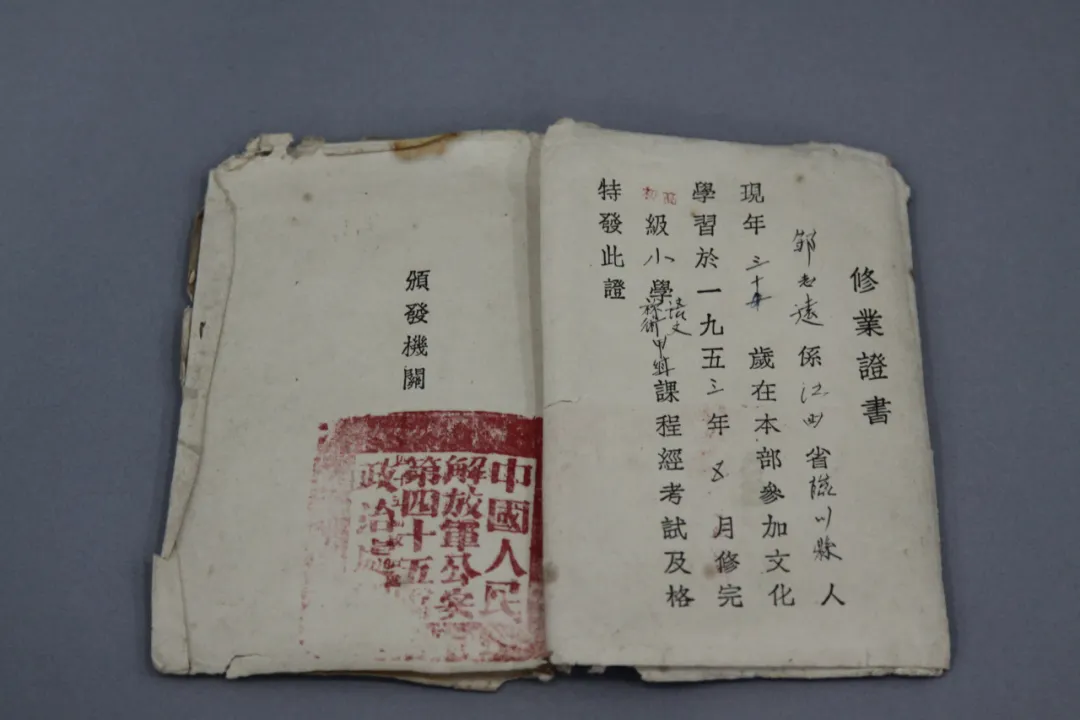 修業證書
鄒志遠係江西省
縣人
現年三十歲在本部參加文化
學習於一九五三年五月修完
級小學語文算術課程經考試及格
特發此證
頒發機關
中國人民
解放軍公安
第四十五
政治處